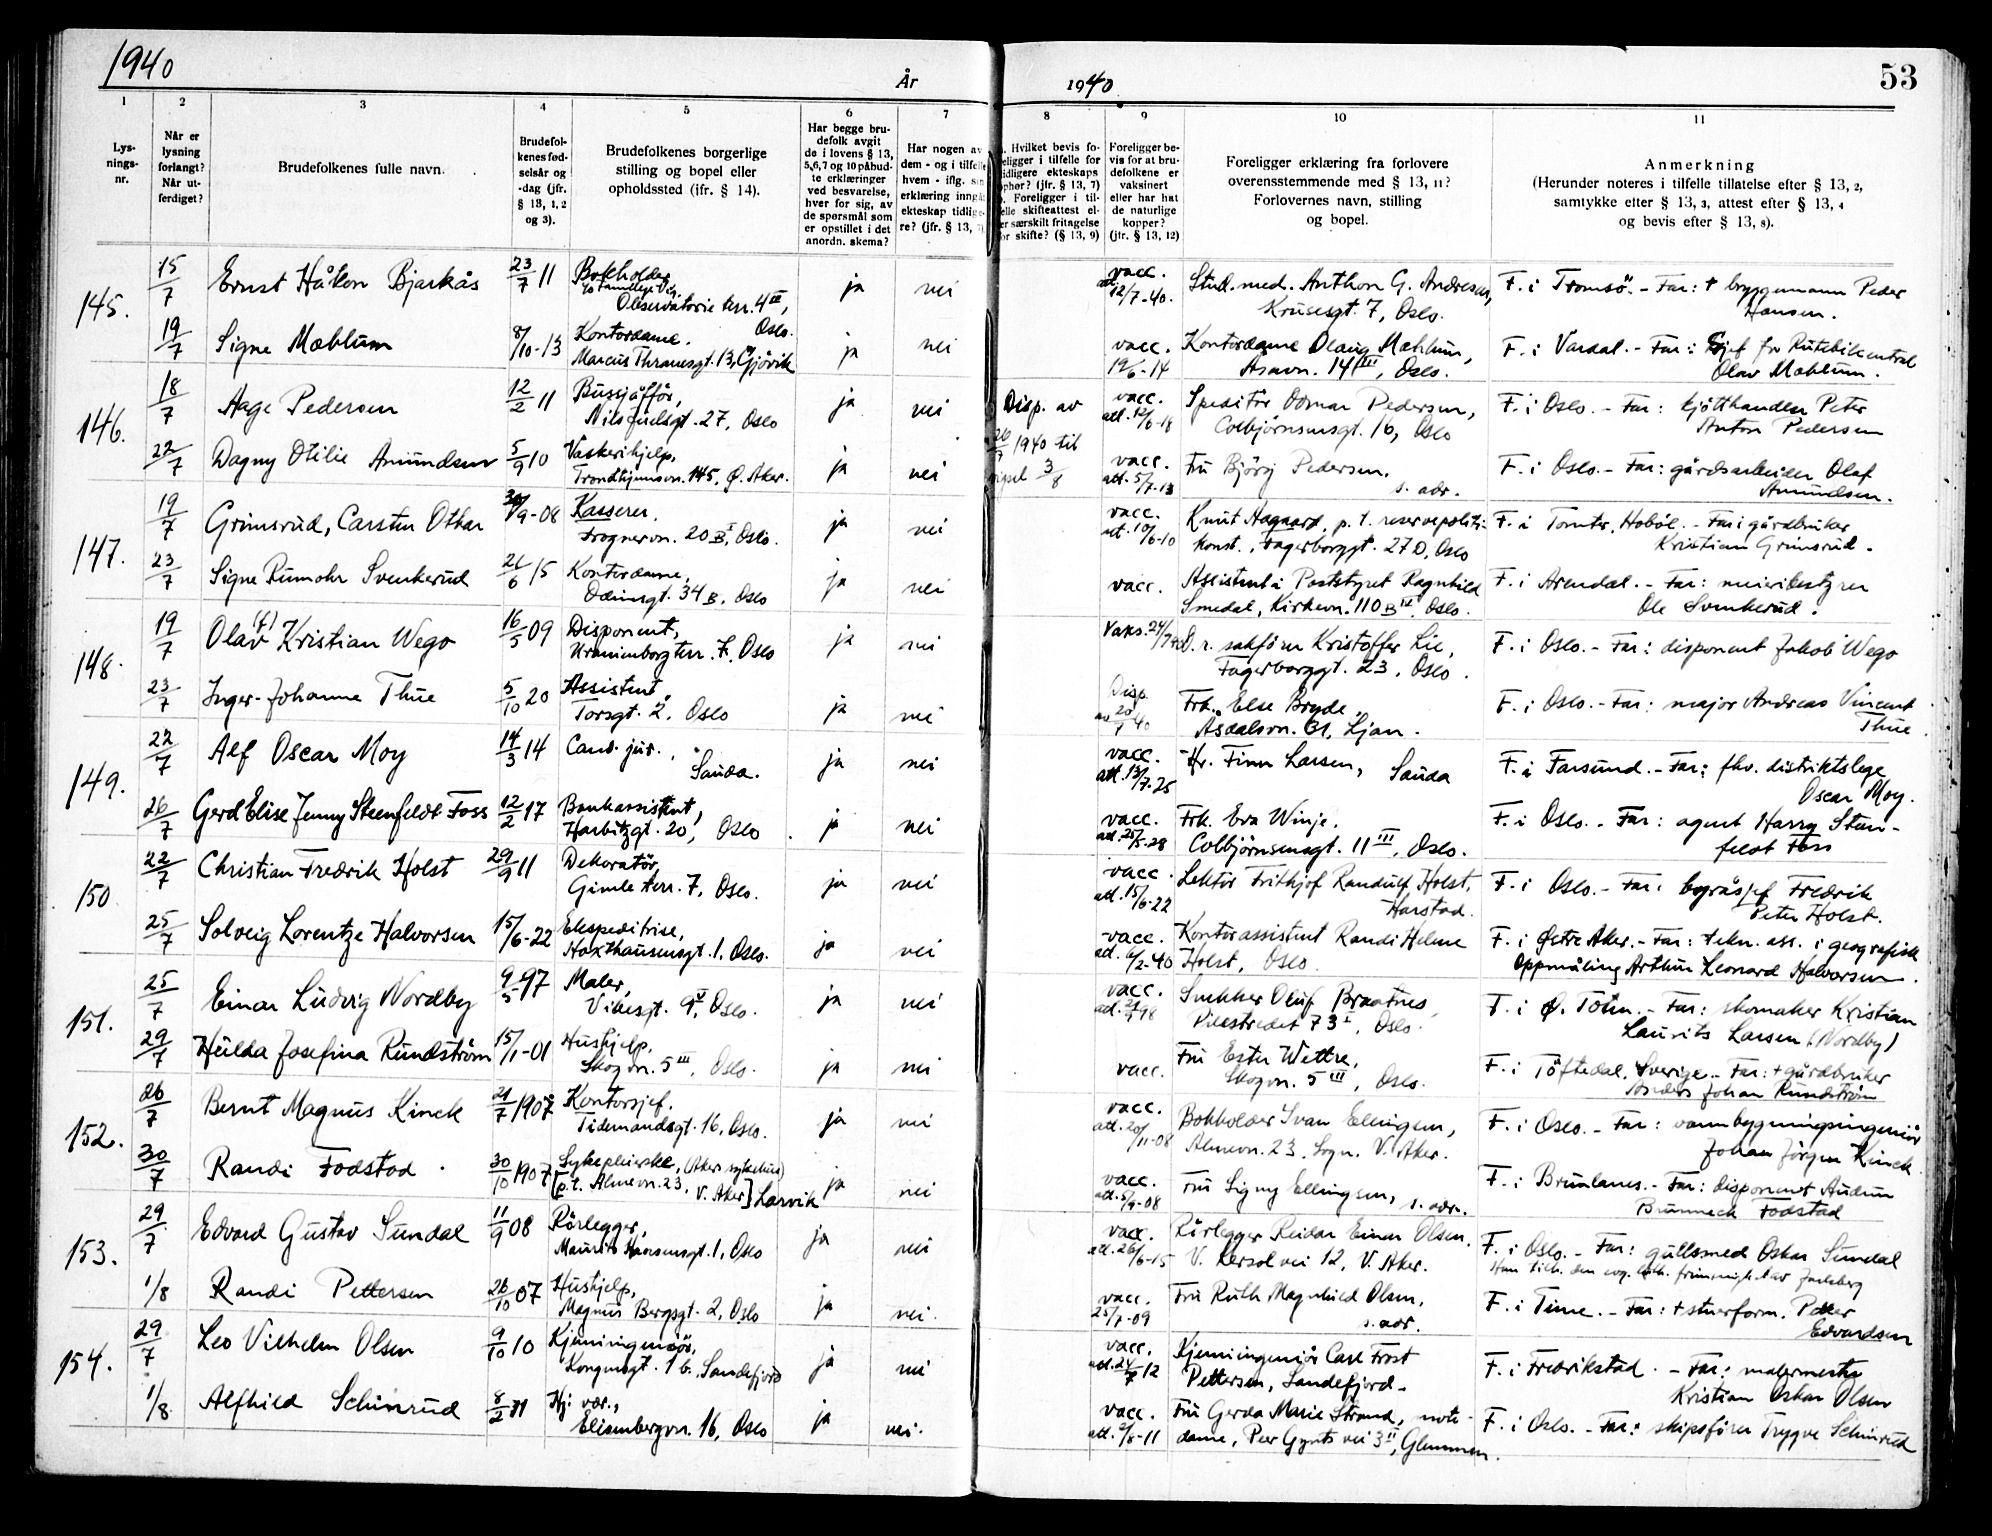 1940
År
1940
53
1
2
3
4
5
6
7
8
9
10
11
Lys-
nings-
nr.
Når er
lysning
forlangt?
Når ut-
ferdiget?
Brudefolkenes fulle navn.
Brudefol-
kenes fød-
selsår og
-dag (jfr.
§ 13, 1, 2
og 3).
Brudefolkenes borgerlige
stilling og bopel eller
opholdssted (ifr. § 14).
Har begge bru-
defolk avgit
de i lovens § 13,
5,6,7 og 10 påbud-
te erklæringer
ved besvarelse,
hver for sig, av
de spørsmål som
er opstillet i det
anordn. skema?
Har nogen av
dem - og i tilfelle
hvem - iflg. sin
erklæring inngå
ekteskap tidlige-
re? (jfr. § 13,
Hvilket bevis fo-
religger i tilfelle for
tidligere ekteskaps
ophør? (jfr. § 13, 7)
Foreligger i til-
felle skifteattest el-
er særskilt fritagelse
for skifte? (§ 13, 9)
Foreligger be-
vis for at bru-
defolkene er
vaksinert
eller har hat
de naturlige
kopper?
(jfr. § 13, 12)
Foreligger erklæring fra forlovere
overensstemmende med § 13, 11?
Forlovernes navn, stilling
og bopel.
Anmerkning
(Herunder noteres i tilfelle tillatelse efter § 13, 2,
samtykke efter § 13, 3, attest efter § 13, 4
og bevis efter § 13, 8).
145.
15/7 Ernst Håkon Bjarkås 23/7 11 Bokholder,
Observatorie terr. 4 III, Oslo.
ja nei
vacc. att. 12/7-40.
Stud. med. Anthon G. Andresen,
Krusesgt. 7, Oslo.
F. i Tromsö. - Far: † bryggemann Peder
Hansen.
19/7 Signe Mæhlum 8/10-13 Kontordame.
Marcus Thranesgt. 13, Gjövik
ja nei
vacc. 19/6-14
Kontordame Olaug Mæhlum,
Asavn. 14 III, Oslo.
F. i Vardal. - Far: Sjef for Rutebilcentral
Olav Mæhlum.
146.
18/7 Aage Pedersen 12/2 11 Bussjåfför,
Nils Juelsgt. 27, Oslo
ja nei
Disp. av
26/7 1940 til
3/8
vacc. att. 12/6-18
Speditör Odmar Pedersen,
Colbjörnsensgt. 16, Oslo
F. i Oslo. - Far: kjötthandler Peter
Anton Pedersen
22/7 Dagny Otilie Amundsen 5/9 10 Vaskerihjelp,
Trondhjemsvn. 145, Ø. Aker.
ja nei
vacc. att. 5/7-13
Fru Björg Pedersen.
s. adr.
F. i Oslo. - Far: gårdsarbeider Olaf
Amundsen.
147.
19/7 Grimsrud, Carsten Othar 30/9-08 Kasserer.
Frognervn. 20 B I, Oslo.
ja nei
vacc. att. 10/6-10
Knut Aagaard, p. t. reservepoliti-
konst., Fagerborggt. 27 D, Oslo
F. i Tomter, Hobøl. - Far: gårdbruker
Kristian Grimsrud.
23/7 Signe Rumohr Svenkerud 26/6 15 Kontordame,
Odinsgt. 34 B. Oslo
ja nei
vacc.
Assistent i Poststyret Ragnhild
Smedal, Kirkevn. 110 B IV. Oslo.
F. i Arendal. - Far: meieribestyrer
Ole Svenkerud.
148.
19/7 Olav (f) Kristian Wego 16/5 09 Disponent,
Uranienborg terr. 7. Oslo
ja nei
Vaks. 24/7 40
O. r. sakförer Kristoffer Lie,
Fagerborggt. 23, Oslo.
F. i Oslo. - Far: disponent Jakob Wego
23/7 Inger-Johanne Thue 5/10 20 Assistent,
Torsgt. 2. Oslo
ja nei
Disp. av 20/7 40
Frk. Else Bryde.
Åsdalsvn. 31, Ljan.
F. i Oslo. - Far: major Andreas Vincent
Thue
149.
22/7 Alf Oscar Moy 14/3 14 Cand. jur.
Sauda.
ja nei
vacc. att. 13/7-25
Hr. Finn Larsen, Sauda
F. i Farsund. - Far: fhv. distriktslege
Oscar Moy.
26/7 Gerd Elise Jenny Steenfeldt Foss 12/2 17 Bankassistent,
Harbitzgt. 20, Oslo.
ja nei
vacc. att. 25/5-28
Frk. Eva Winje.
Colbjörnsensgt. 11 III, Oslo.
F. i Oslo. - Far: agent Harry Steen-
feldt Foss
150
22/7 Christian Fredrik Holst 29/9 11 Dekoratör,
Gimle terr. 7, Oslo.
ja nei
vacc. att. 15/6-22
Lektor Frithjof Randulf Holst,
Harstad.
F. i Oslo. - Far: byråsjef Fredrik
Peter Holst.
25/7 Solveig Lorentze Halvorsen 15/6-22 Ekspeditrise,
Haxthausensgt. 1. Oslo.
ja nei
vacc. att. 6/2-40
Kontorassistent Randi Helene
Holst, Oslo.
F. i Østre Aker. - Far: tekn. ass. i geografisk
Oppmåling Arthur Leonard Halvorsen.
151.
25/7 Einar Ludvig Nordby 9/5 97 Maler,
Vibesgt. 9 V, Oslo.
ja nei
vacc.
Snekker Oluf Braatnes
Pilestredet 73 I, Oslo.
F. i Ø. Toten. - Far: skomaker Kristian
Laurits Larsen (Nordby)
29/7 Hulda Josefina Rundström 15/1-01 Hushjelp.
Skogvn. 5 III, Oslo.
ja nei
vacc.
Fru Ester Wettre,
Skogvn. 5 III, Oslo.
F. i Töftedal, Sverige. - Far: † gårdbruker
Anders Johan Rundström
152.
26/7 Bernt Magnus Kinck 21/7 1907 Kontorsjef.
Tidemandsgt. 16, Oslo.
ja nei
vacc. att. 20/11-08
Bokholder Ivan Ellingsen,
Almevn. 23, Sogn. V. Aker.
F. i Oslo. - Far: vannbygningsingeniör
Johan Jörgen Kinck.
30/7 Randi Fodstad 30/10 1907 Sykepleierske, (Aker sykehus)
[p. t. Almevn. 23, V. Aker] Larvik
ja nei
vacc. att. 5/9-08
Fru Signy Ellingsen, s. adr.
F. i Brunlanes. - Far: disponent Audun
Brunneck Fodstad
153.
29/7 Edvard Gustav Sundal 11/9 08 Rörlegger,
Maurits Hansensgt. 1, Oslo
ja nei
vacc. att. 26/6-15
Rörlegger Reidar Einar Olsen.
V. Kersol vei 12, V. Aker.
F. i Oslo. - Far: gullsmed Oskar Sundal
Han tilh. den evg. luth. frimenigh. Jarlsberg
1/8 Randi Pettersen 26/10 07 Hushjelp,
Magnus Bergsgt. 2, Oslo
ja nei.
vacc. 25/7-09
Fru Ruth Magnhild Olsen,
s. adr.
F. i Time. - Far: † stuerform. Peder
Edvardsen
154.
29/7 Leo Vilhelm Olsen 9/10 10 Kjemiingeniör,
Kongensgt. 1 b. Sandefjord
ja nei
vacc. att. 24/7 12
Kjemiingeniör Carl Frost
Pettersen, Sandefjord.
F. i Fredrikstad. - Far: malermester
Kristian Oskar Olsen
1/8 Alfhild Schinrud 8/2 11 Hj: vær.,
Elisenbergvn. 16, Oslo
ja nei.
vacc. att. 2/8-11
Fru Gerda Marie Strand, note-
dame, Peer Gynts vei 3 II, Glemmen.
F. i Oslo. - Far: skipsförer Trygve Schinrud